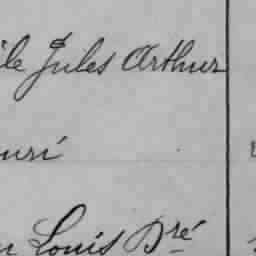 ile Jules Arthur
uri
Louis Dré